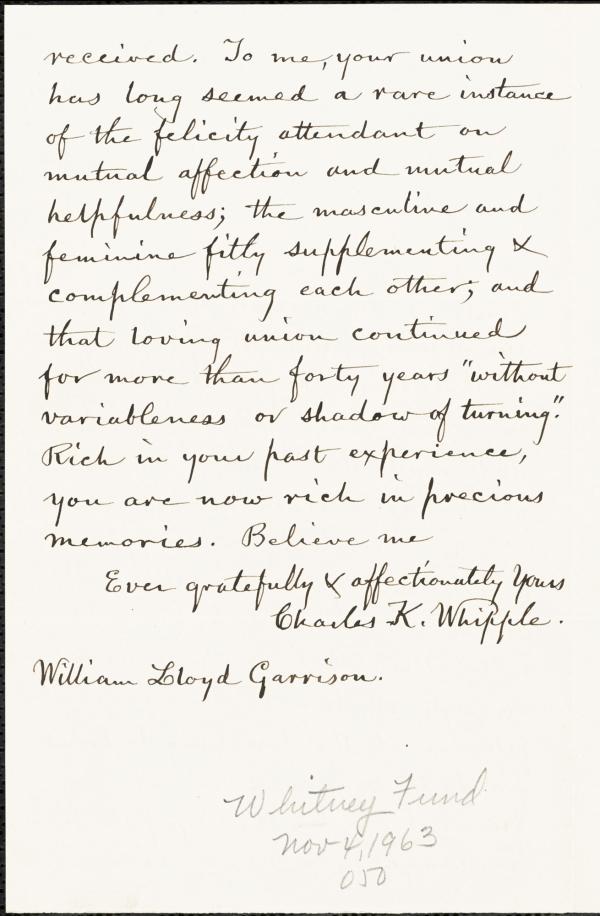 received. To me, your union
has long seemed a rare instance
of the felicity attendant on
mutual affection and mutual
helpfulness; the masculine and
feminine fitly supplementing &
complementing each other; and
that loving union continued
for more than forty years "without
variableness or shadow of turning".
Rich in your past experience,
you are now rich in precious
memories. Believe me
Ever gratefully & affectionately Yours
Charles K. Whipple.
William Lloyd Garrison.
Whitney Fund
Nov 4, 1963
050